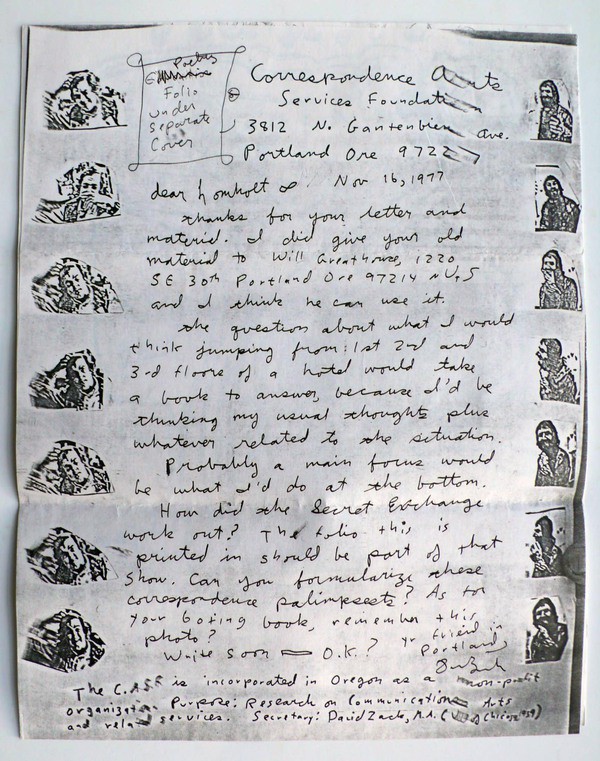 Poetry
Folio
under
separate
Cover
Correspondence Arts
Services Foundati
3812 N. Gantenbien Ave.
Portland Ore 9722
Nov 16, 1977
dear Lomholt
thanks for your letter and
material. I did give your old
material to Will Greathouse, 1220
SE 30th Portland Ore 97214
and I think he can use it.
The question about what I would
think jumping from 1st 2nd and
3rd floors of a hotel would take
a book to answer, because I'd be
thinking my usual thoughts plus
whatever related to the situation.
Probably a main focus would
be what I'd do at the bottom.
How did the Secret Exchange
work out? The folio this is
printed in should be part of that
show. Can you formularize these
correspondence palimpsests? As for
your boxing book, remember this
photo?
yr friend in
Portland,
Write soon — O.K.?
The C.A.S.F. is incorporated in Oregon as a non-profit
organization Purpose: Research on Communication Arts
and rela services. Secretary: David Zack, M.A. (Chicago 1959)